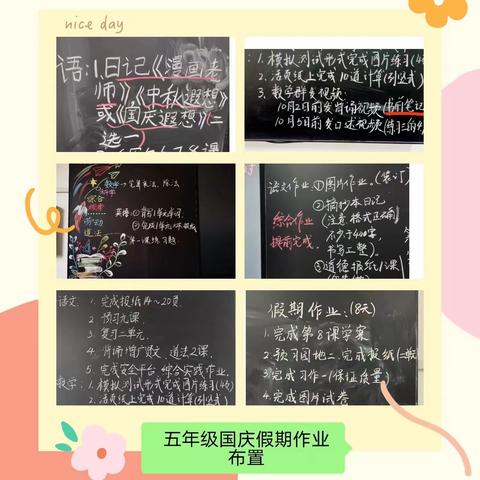 nice day
语:1.日记《漫画老
师》《中秋遐想》
或《国庆遐想》二
选一
1.模拟测试形式完成图片练习(4
2.活页纸上完成10道计算(列竖式)
3.数学群发视频:
10月2日前发背诵视频(书前笔记
10月5日前发口述视频(练习三的4
数学
综合
劳动
道法
英语:①
语文作业:①图片作业。(装订
②摘抄本日记
(注意:格式正确,
不少于400字,
书写工整)。
③道德报纸1课
综合作业
提前完成
语文:1.完成报纸14~20页.
2.预习九课.
3.复习二单元.
4.背诵增广贤文、道法2课.
5.完成安全平台、综合实践作业.
数学:1.模拟测试形式完成图片练习(4
2.活页纸上完成10道计算(列竖式)
假期作业:(8天)
1.完成第8课学案
2.预习园地二、完成报纸(二版
3.完成习作一(保证质量)
4.完成图片试卷
五年级国庆假期作业
布置